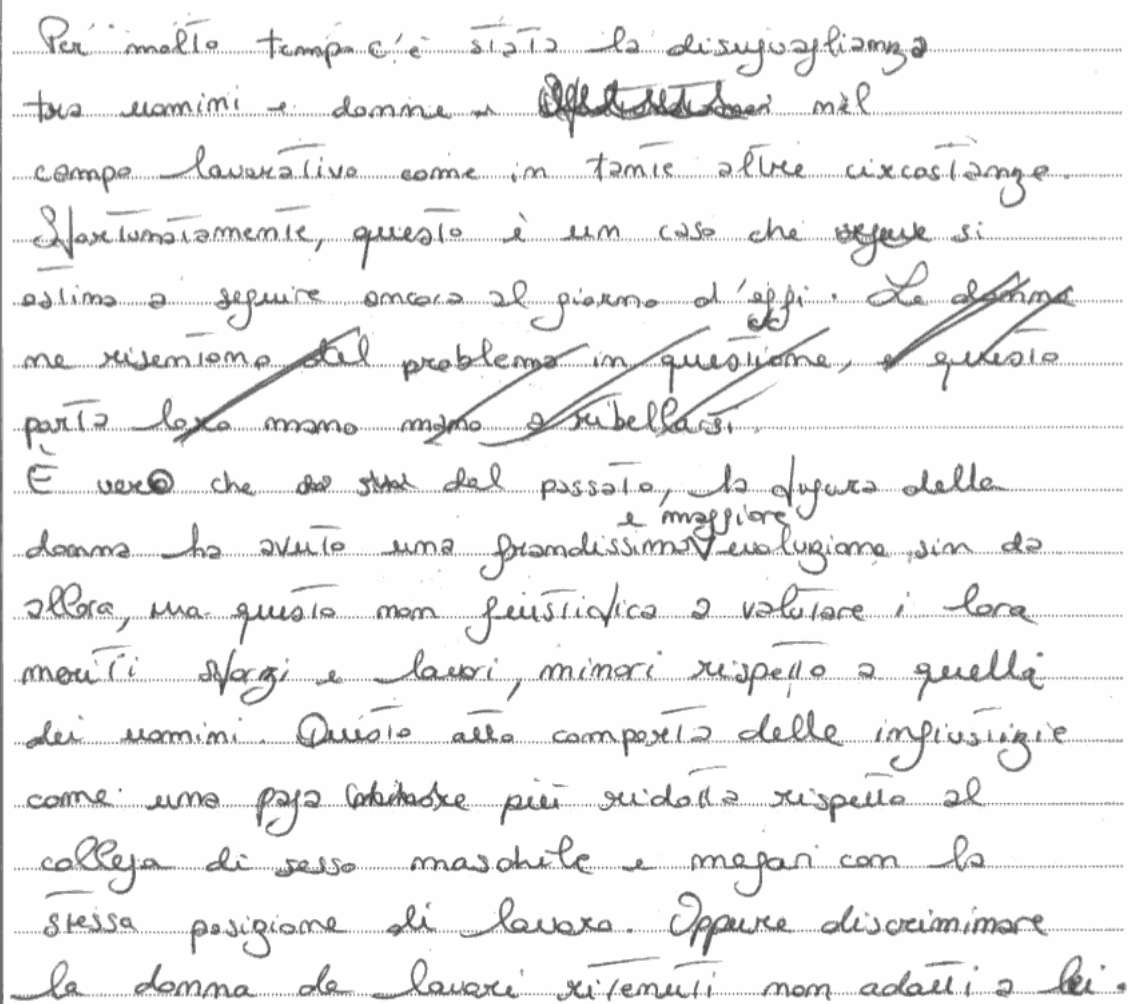 Per molto tempo c'è stata la disuguaglianza
tra uomini e donne nel
campo lavorativo come in tante altre circostanze.
Sfortunatamente, questo è un caso che si
ostina a seguire ancora al giorno d'oggi. Le donne
ne risentono del problema in questione, e questo
porta loro mano mano a ribellarsi.
È vero che dal passato, la figura della
e maggiore
donna ha avuto una grandissima evoluzione sin da
allora, ma questo non giustifica a valutare i loro
meriti sforzi e lavori, minori rispetto a quella
dei uomini. Questo atto comporta delle ingiustizie
come una paga più ridotta rispetto al
collega di sesso maschile e magari con la
stessa posizione di lavoro. Oppure discriminare
la donna da lavori ritenuti non adatti a lei.